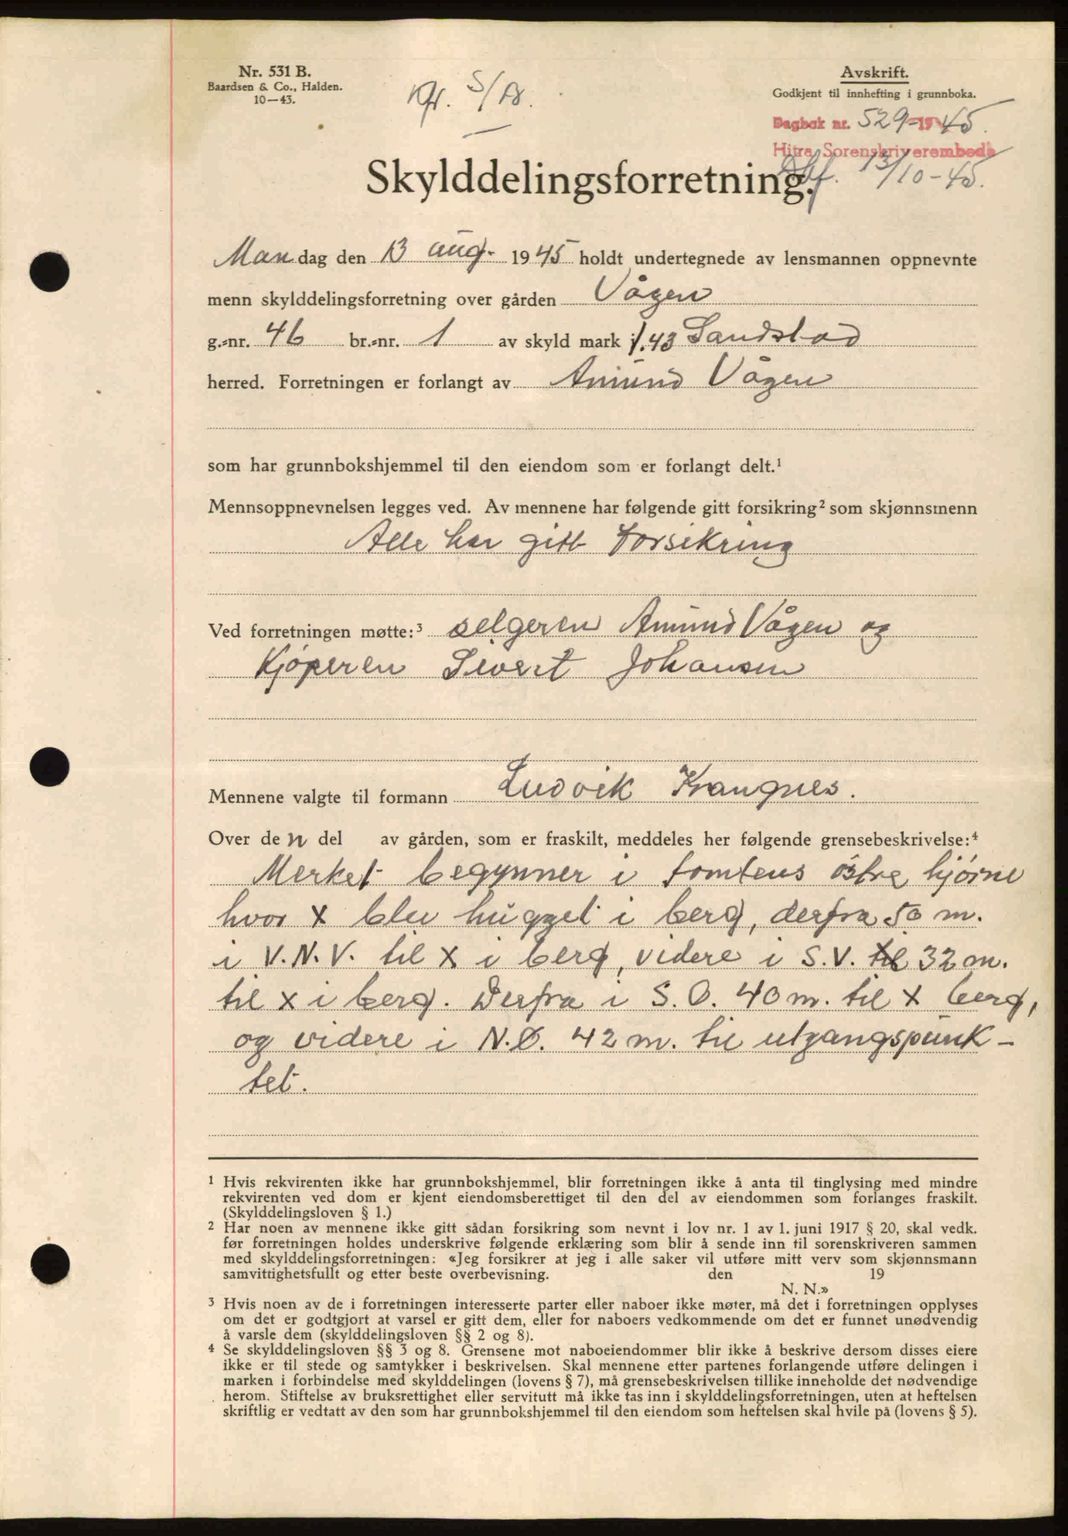 Nr. 531 B.
Baardsen & Co., Halden.
10—43.
Kfr. S/A.
Avskrift.
Godkjent til innhefting i grunnboka.
Dagbok nr. 529-1945.
Hitra Sorenskriverembede
13/10-45.
Skylddelingsforretning.
Mandag den 13 aug. 1945 holdt undertegnede av lensmannen oppnevnte
menn skylddelingsforretning over gården Vågen
g.-nr. 46 br.-nr. 1 av skyld mark 1.43 Sandstad
herred. Forretningen er forlangt av Amund Vågen
som har grunnbokshjemmel til den eiendom som er forlangt delt.¹
Mennsoppnevnelsen legges ved. Av mennene har følgende gitt forsikring² som skjønnsmenn
Alle har gitt forsikring
Ved forretningen møtte:³ selgeren Amund Vågen og
Kjøperen Sivert Johansen
Mennene valgte til formann Ludvik Krangnes.
Over den del av gården, som er fraskilt, meddeles her følgende grensebeskrivelse:⁴
Merket begynner i tomtens østre hjørne
hvor x blev hugget i berg, derfra 50 m.
i V.N.V. til x i berg, videre i S.V. til 32 m.
til x i berg. Derfra i S.O. 40 m. til x berg,
og videre i N.Ø. 42 m. til utgangspunk-
tet.
¹ Hvis rekvirenten ikke har grunnbokshjemmel, blir forretningen ikke å anta til tinglysing med mindre
rekvirenten ved dom er kjent eiendomsberettiget til den del av eiendommen som forlanges fraskilt.
(Skylddelingsloven § 1.)
² Har noen av mennene ikke gitt sådan forsikring som nevnt i lov nr. 1 av 1. juni 1917 § 20, skal vedk.
før forretningen holdes underskrive følgende erklæring som blir å sende inn til sorenskriveren sammen
med skylddelingsforretningen: «Jeg forsikrer at jeg i alle saker vil utføre mitt verv som skjønnsmann
samvittighetsfullt og etter beste overbevisning. den 19
N. N.»
³ Hvis noen av de i forretningen interesserte parter eller naboer ikke møter, må det i forretningen opplyses
om det er godtgjort at varsel er gitt dem, eller for naboers vedkommende om det er funnet unødvendig
å varsle dem (skylddelingsloven §§ 2 og 8).
⁴ Se skylddelingsloven §§ 3 og 8. Grensene mot naboeiendommer blir ikke å beskrive dersom disses eiere
ikke er til stede og samtykker i beskrivelsen. Skal mennene etter partenes forlangende utføre delingen i
marken i forbindelse med skylddelingen (lovens § 7), må grensebeskrivelsen tillike inneholde det nødvendige
herom. Stiftelse av bruksrettighet eller servitutt må ikke tas inn i skylddelingsforretningen, uten at heftelsen
skriftlig er vedtatt av den som har grunnbokshjemmel til den eiendom som heftelsen skal hvile på (lovens § 5).